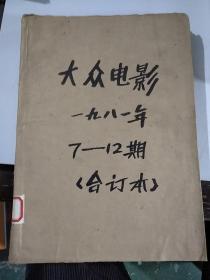 大众电影
一九八一年
7—12期
《合订本》